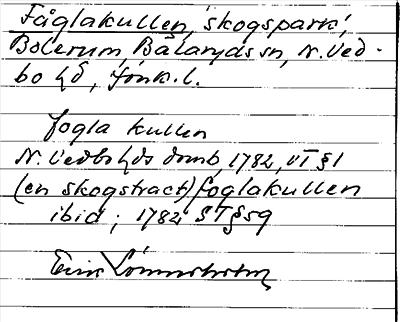 Fåglakullen, skogspark,
Bolerum, Bälaryds sn, N. Ved-
bo hd, Jönk. l.
fogla kullen
N. Vedbo hds domb, 1782, VT § 1
(en skogstract) foglakullen
ibid; 1782 ST § 59